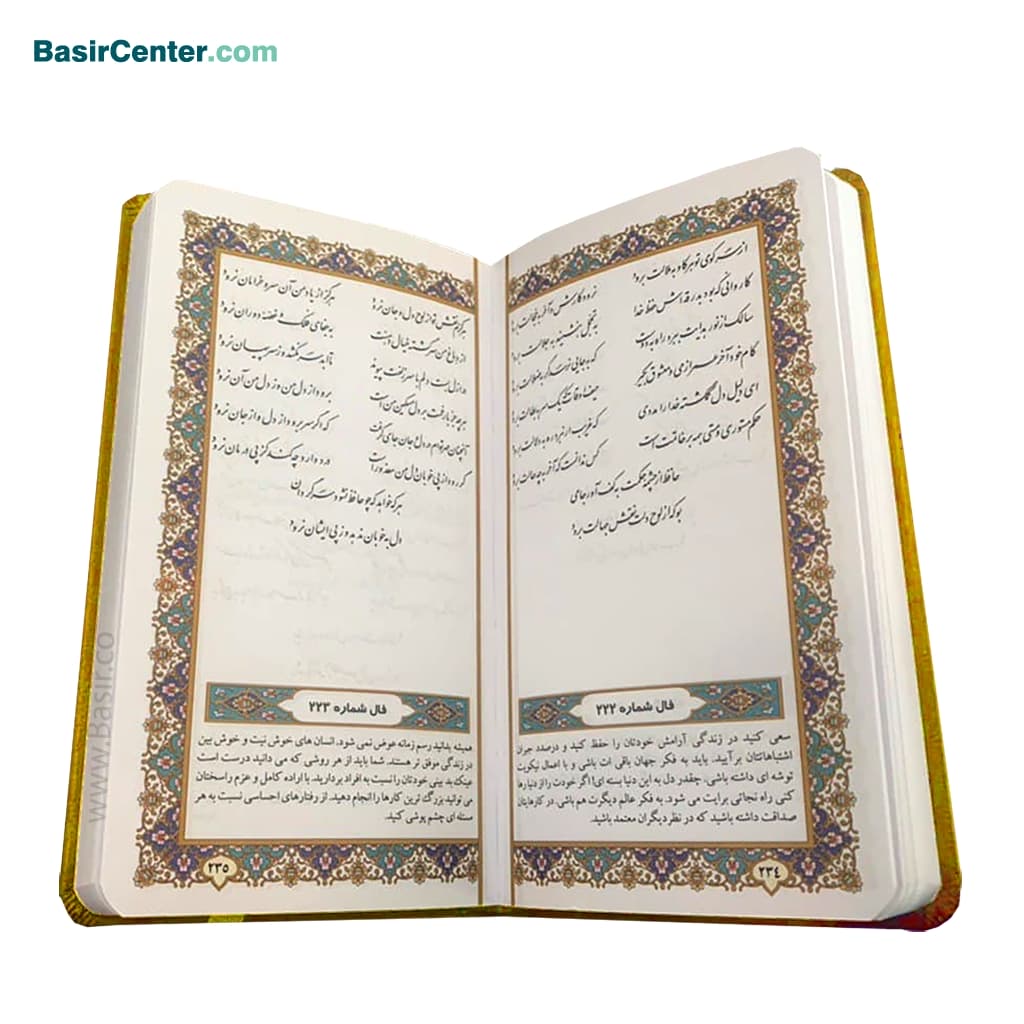 BasirCenter.com
از سر کوی تو هر کاو به ملالت برود نرود کارش و آخر به خجالت برود
کاروانی که بود بدرقه اش حفظ خدا به تجمل بنشیند به جلالت برود
سالک از نور هدایت ببرد راه به دوست که به جایی نرسد گر به ضلالت برود
کام خود آخر عمر از می و معشوق بگیر حیف اوقات که یک سر به بطالت برود
ای دلیل دل گمگشته خدا را مددی که غریب ار نبرد ره به دلالت برود
حکم مستوری و مستی همه بر خاتمت است کس ندانست که آخر به چه حالت برود
حافظ از چشمه حکمت به کف آور جامی
بو که از لوح دلت نقش جهالت برود
فال شماره ۲۲۲
سعی کنید در زندگی آرامش خودتان را حفظ کنید و درصدد جبران
اشتباهاتتان برآیید. باید به فکر جهان باقی ات باشی و با اعمال نیکویت
توشه ای داشته باشی. چقدر دل به این دنیا بسته ای! اگر خودت را از دنیا رها
کنی راه نجاتی برایت می شود. به فکر عالم دیگرت هم باشی. در کارهایتان
صداقت داشته باشید که در نظر دیگران معتمد باشید.
۲۳٤
هرگزم نقش تو از لوح دل و جان نرود هرگز از یاد من آن سرو خرامان نرود
از دماغ من سرگشته خیال دهنت به جفای فلک و غصه دوران نرود
در ازل بست دلم با سر زلفت پیوند تا ابد سر نکشد وز سر پیمان نرود
هر چه جز بار غمت بر دل مسکین من است برود از دل من وز دل من آن نرود
آنچنان مهر توام در دل و جان جای گرفت که اگر سر برود از دل و از جان نرود
گر رود از پی خوبان دل من معذور است درد دارد چه کند کز پی درمان نرود
هر که خواهد که چو حافظ نشود سرگردان
دل به خوبان ندهد وز پی ایشان نرود
فال شماره ۲۲۳
همیشه بدانید رسم زمانه عوض نمی شود. انسان های خوش نیت و خوش بین
در زندگی موفق تر هستند. شما باید از هر روشی که می دانید درست است
عینک بد بینی خودتان را نسبت به افراد بردارید. با اراده کامل و عزم راسختان
می توانید بزرگ ترین کارها را انجام دهید. از رفتارهای احساسی نسبت به هر
مسئله ای چشم پوشی کنید.
۲۳۵
www.Basir.co